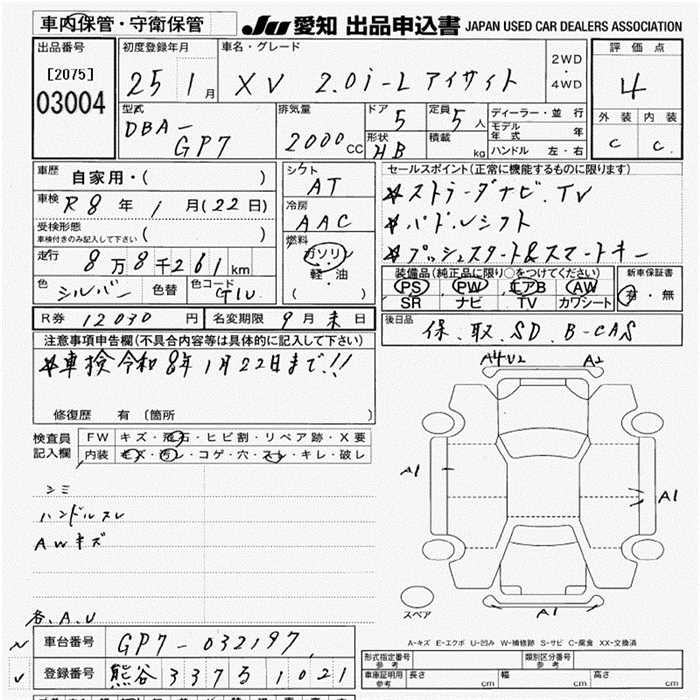 車内保管・守衛保管
JU 愛知 出品申込書 JAPAN USED CAR DEALERS ASSOCIATION
出品番号 初度登録年月 車名・グレード 2WD・4WD 評価点
[2075] 03004 25 1月 XV 2.0i-L アイサイト 4
型式 排気量 ドア 5 定員 5人 ディーラー・並行 外装 内装
DBA-GP7 2000cc 形状 HB 積載 kg モデル年式 年 C C
ハンドル 左・右
車歴 自家用・( ) シフト AT セールスポイント(正常に機能するものに限ります)
車検 R8年1月(22日) 冷房 AAC ストラーダナビ.TV
受検形態 ( ) パドルシフト
車検付きのみ記入して下さい 燃料 ガソリン プッシュスタート&スマートキー
走行 8万8千261km 軽・油 装備品(純正品に限り○をつけてください) 新車保証書
色 シルバー 色替 色コード G1U ( ) PS PW エアB AW 有・無
SR ナビ TV カワシート
R券 12030円 名変期限 9月末日 後日品
注意事項申告欄(不具合内容等は具体的に記入して下さい) 保、取、SD、B-CAS
車検令和8年1月22日まで!! A4U2 A2
修復歴 有 〔箇所 〕
検査員記入欄 FW キズ・飛石・ヒビ割・リペア跡・X要
内装 キズ・汚レ・コゲ・穴・スレ・キレ・破レ A1
シミ A1
ハンドルスレ
AWキズ
スペア A1
各、A、U A-キズ E-エクボ U-凹み W-補修跡 S-サビ C-腐食 XX-交換済
車台番号 GP7-032197 型式指定番号 参考 類別区分番号 参考
登録番号 熊谷 337 5 1021 車庫証明用 参考 長さ cm 幅 cm 高さ cm